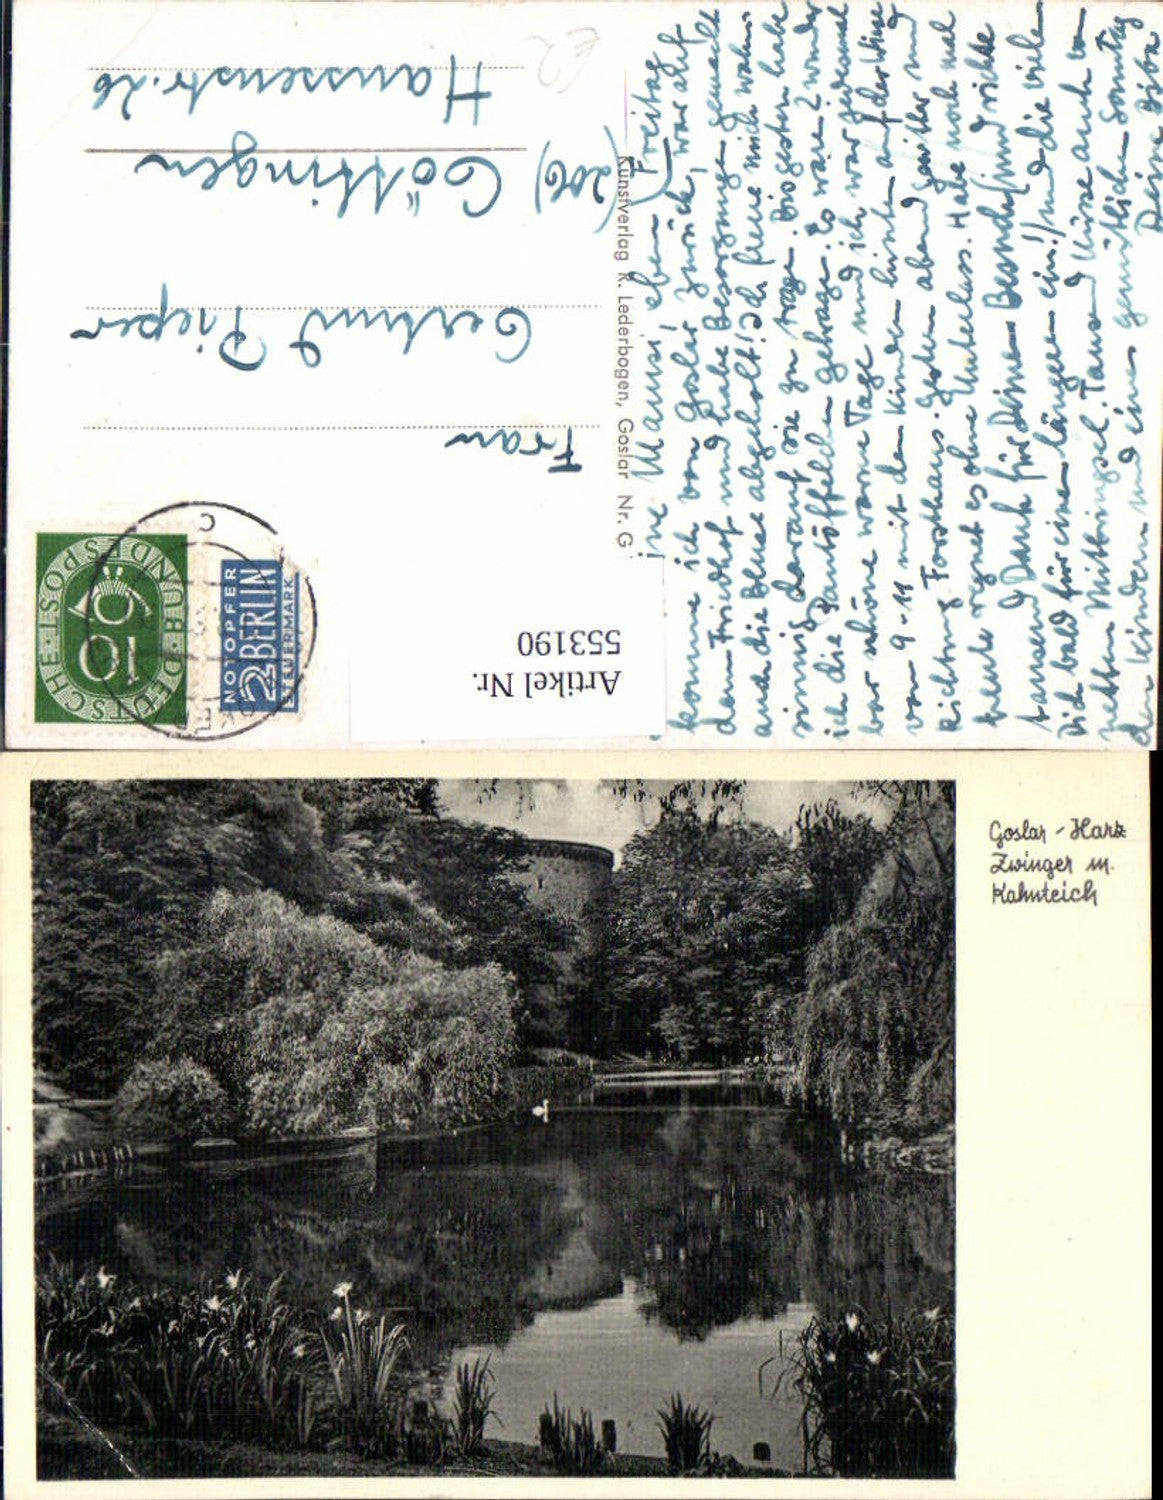 Frau
Gertrud Pieper
(20b) Göttingen
Haussenstr. 26
Kunstverlag K. Lederbogen, Goslar Nr. G
DEUTSCHE BUNDESPOST
10
NOTOPFER
2 BERLIN
STEUERMARKE
OKER
C
Artikel Nr.
553190
Freitag
Mausi! eben
komme ich von Goslar zurück, war auf
dem Friedhof und habe Besorgungen gemacht
auch die Bluse abgeholt! Ich freue mich wahn-
sinnig darauf sie zu tragen. Bis gestern habe
ich die Pantöffelchen getragen. Es waren 2 wunder
bar schöne warme Tage und ich war jedesmal
von 9-11 mit den Kindern hinten auf der Wiese
Richtung Forsthaus. Gestern abend Gewitter und
heute regnet es ohne Unterlass. Habe noch mal
tausend Dank für Deinen Besuch und richte
Dich bald für einen längeren ein! und die vielen
netten Mitbringsel. Tausend Küsse auch von
den Kindern und einen gemütlichen Sonntag
Deine
Goslar - Harz
Zwinger m.
Kahnteich